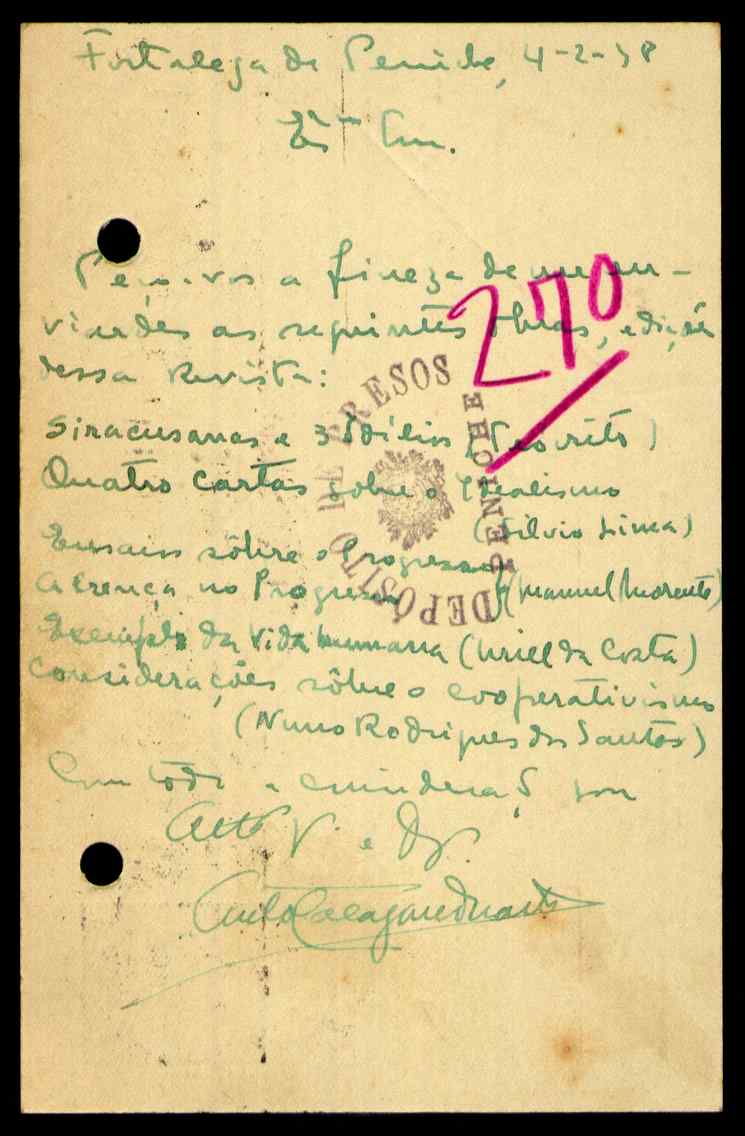 Fortaleza de Peniche, 4-2-38
Exmos Snr.
270
Peço-vos a fineza de me en-
viardes as seguintes obras, edições
dessa Revista:
Siracusanas e 3 Idílios (Teócrito)
Quatro Cartas sobre o Idealismo
(Silvio Lima)
Ensaios sôbre o Progresso
A crença no Progresso (Manuel Morente)
Exemplo da Vida humana (Uriel da Costa)
Considerações sôbre o cooperativismo
(Nuno Rodrigues dos Santos)
Com toda a consideração sou
Atto V. e
DEPÓSITO DE PRESOS
PENICHE